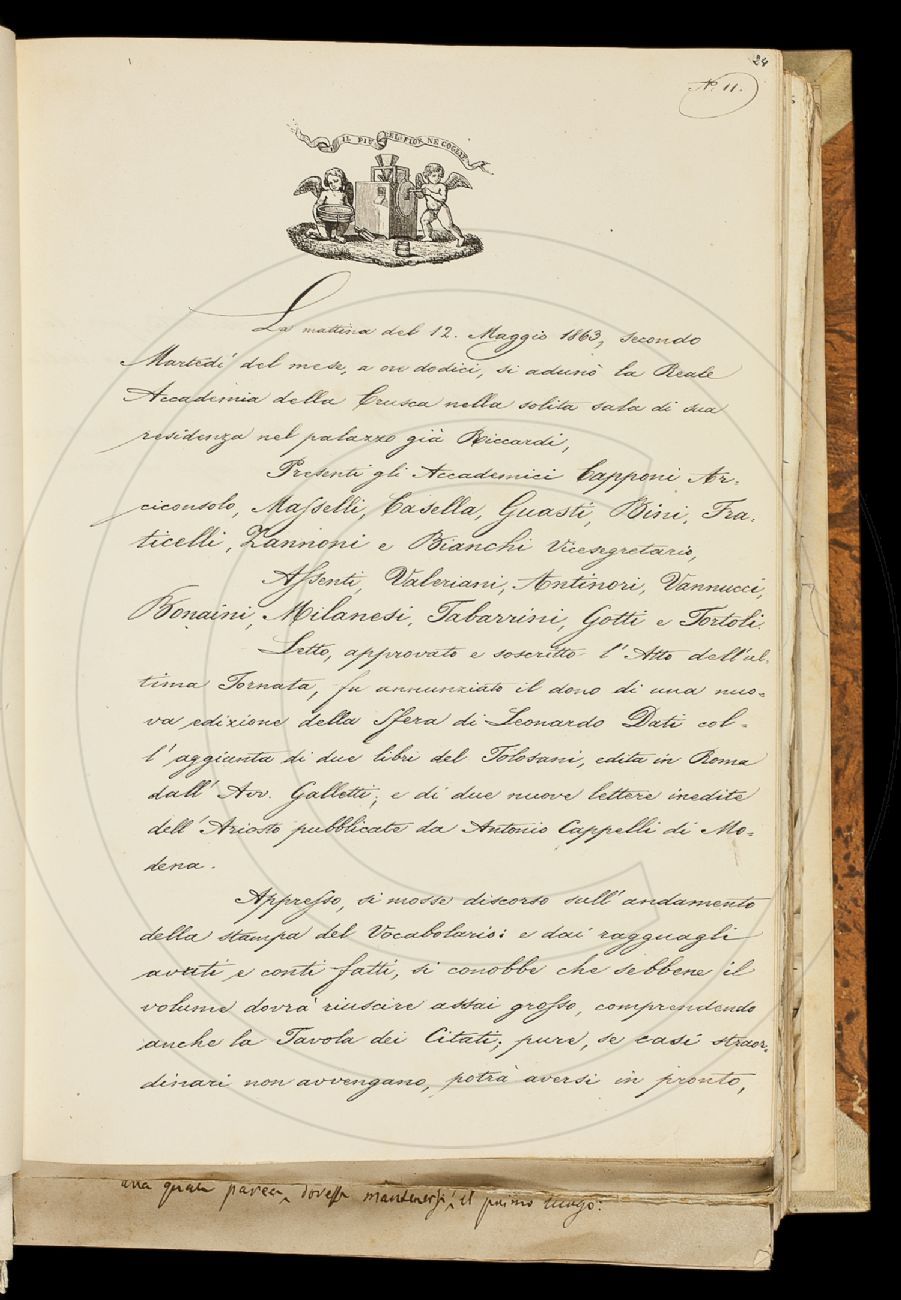 24
N.° 11.
IL PIÙ BEL FIOR NE COGLIE
La mattina del 12. Maggio 1863, secondo
Martedì del mese, a ore dodici, si adunò la Reale
Accademia della Crusca nella solita sala di sua
residenza nel palazzo già Riccardi,
Presenti gli Accademici Capponi Ar-
ciconsolo, Masselli, Casella, Guasti, Bini, Fra-
ticelli, Zannoni e Bianchi Vicesegretario,
Assenti, Valeriani, Antinori, Vannucci,
Bonaini, Milanesi, Tabarrini, Gotti e Tortoli.
Letto, approvato e soscritto l'Atto dell'ul-
tima Tornata, fu annunziato il dono di una nuo-
va edizione della Sfera di Leonardo Dati col-
l'aggiunta di due libri del Tolosani, edita in Roma
dall'Avv. Galletti; e di due nuove lettere inedite
dell'Ariosto pubblicate da Antonio Cappelli di Mo-
dena.
Appresso, si mosse discorso sull'andamento
della stampa del Vocabolario: e dai ragguagli
avuti e conti fatti, si conobbe che sebbene il
volume dovrà riuscire assai grosso, comprendendo
anche la Tavola dei Citati; pure, se casi straor-
dinari non avvengano, potrà aversi in pronto,
parea dovesse mantenersi il primo luogo: